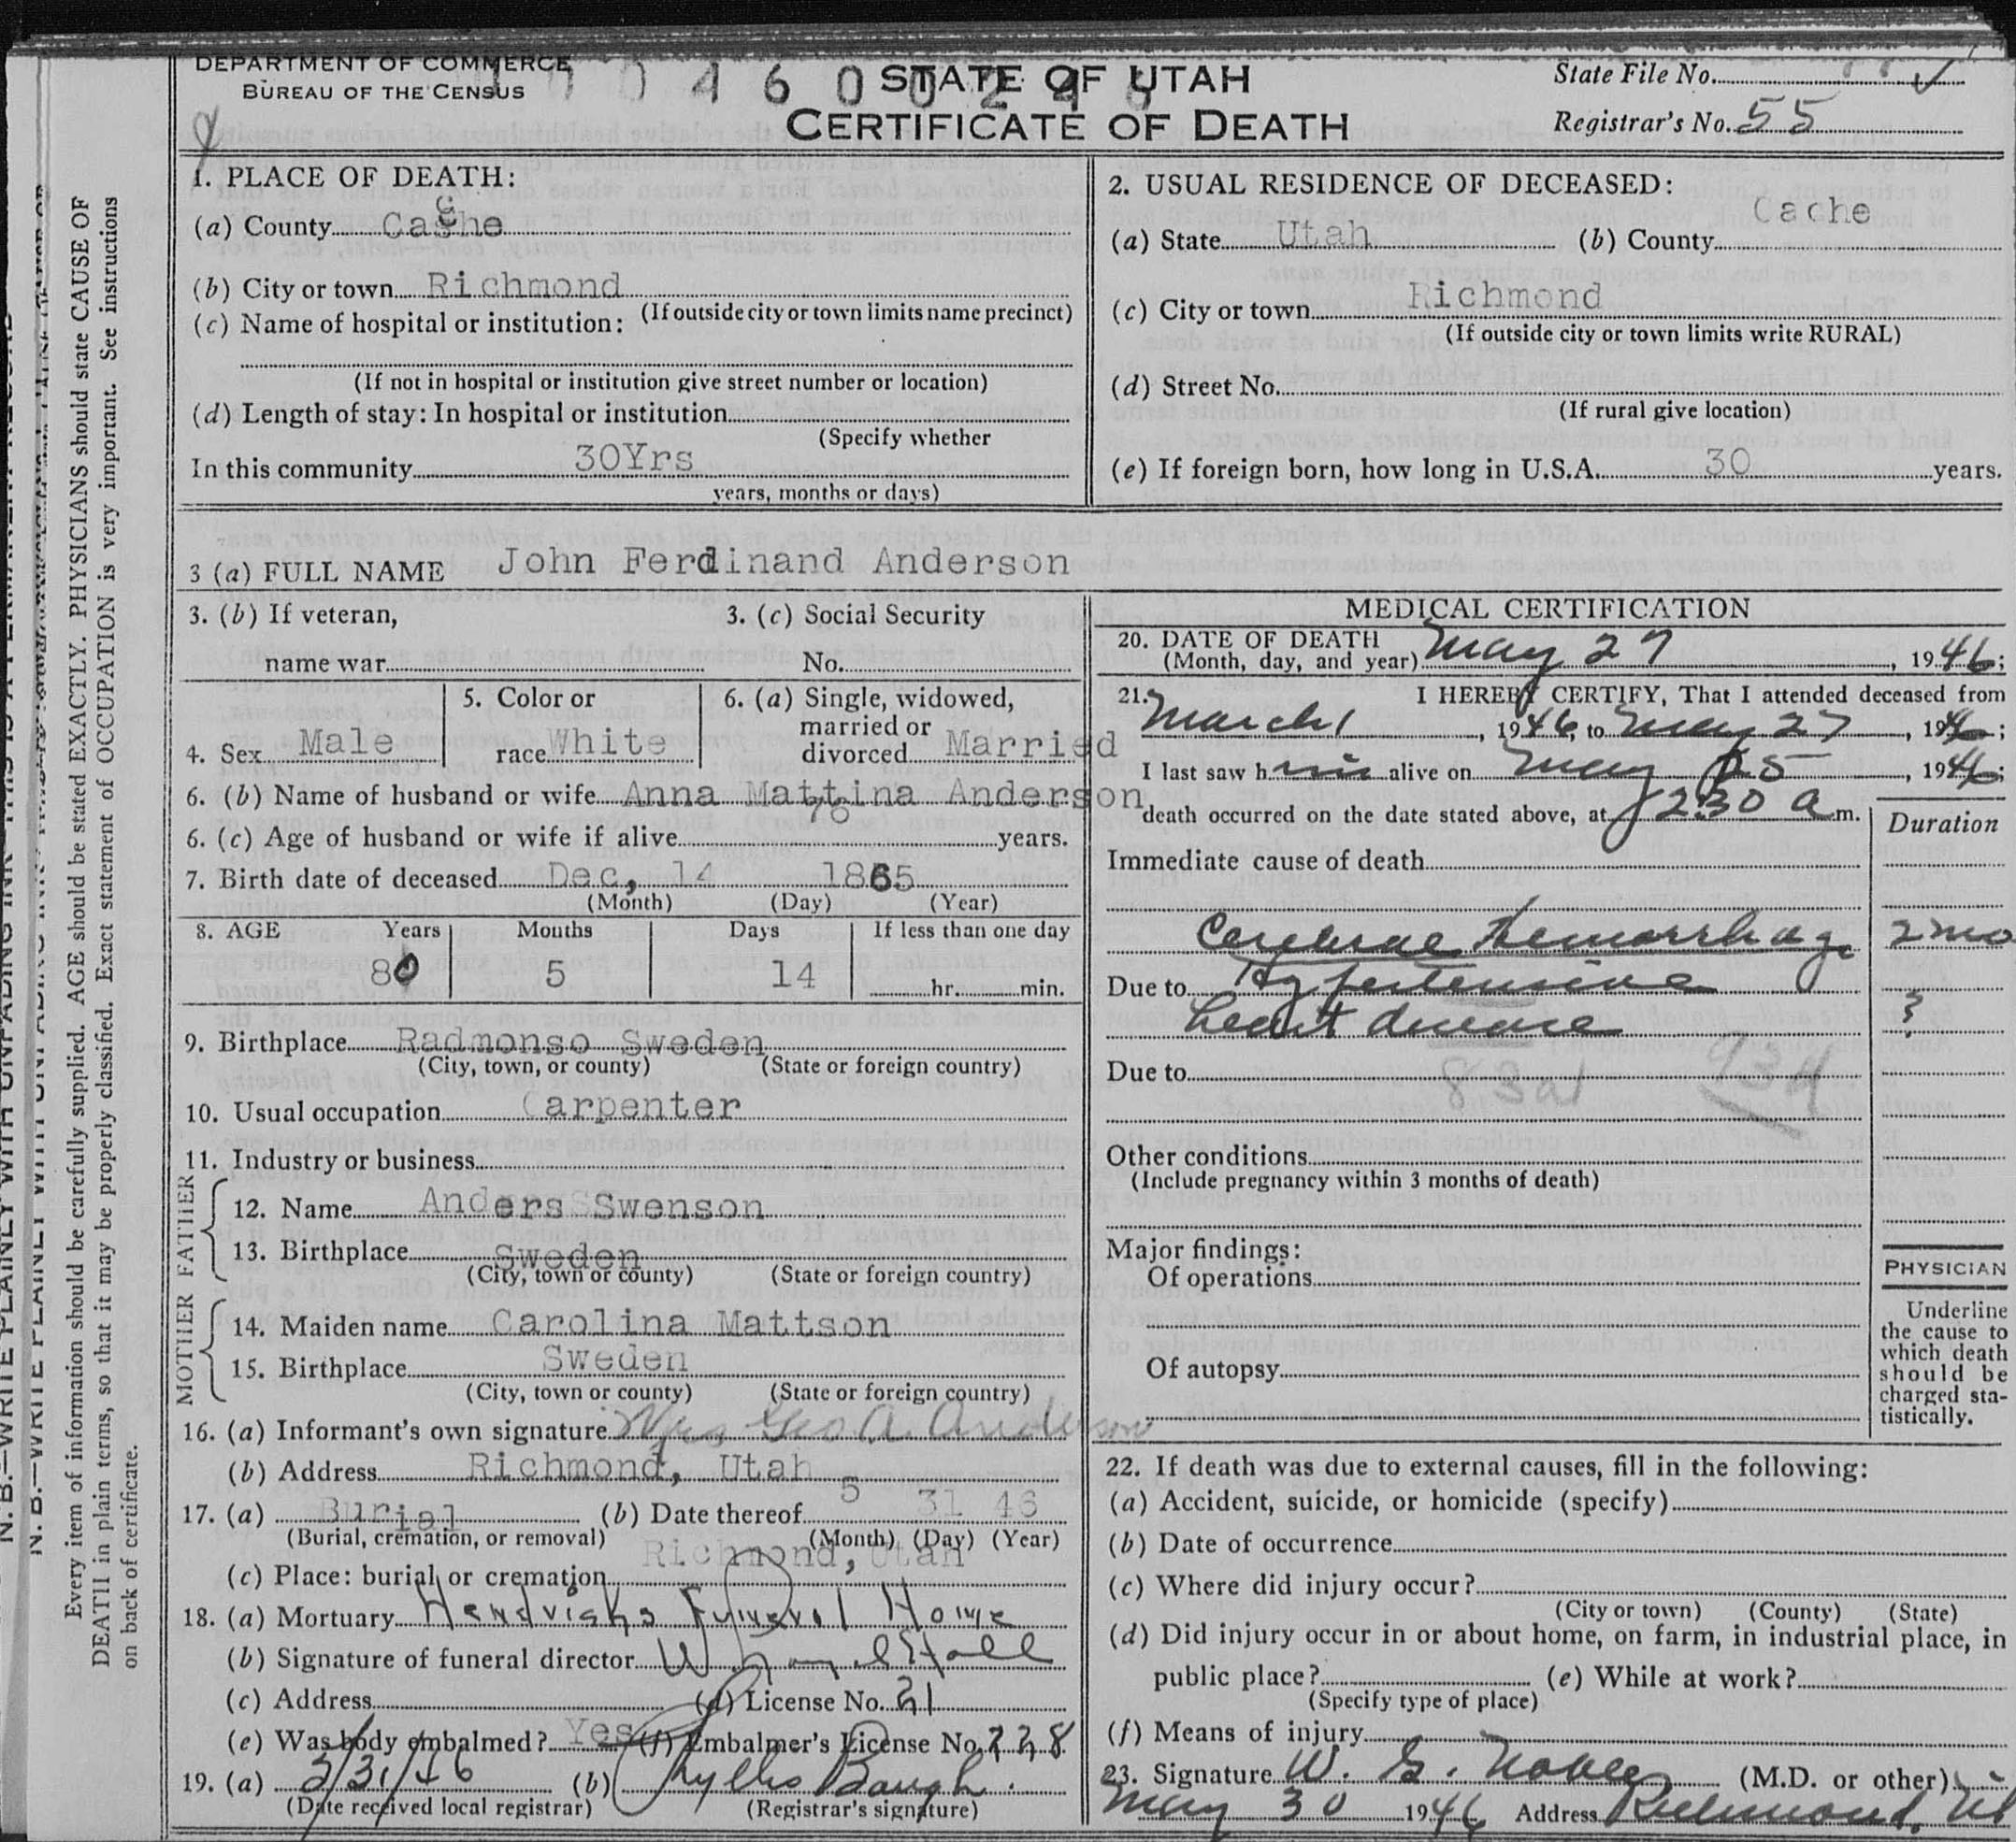 DEPARTMENT OF COMMERCE
BUREAU OF THE CENSUS
STATE OF UTAH
CERTIFICATE OF DEATH
State File No.
Registrar's No. 55
1. PLACE OF DEATH:
(a) County Cache
(b) City or town Richmond
(If outside city or town limits name precinct)
(c) Name of hospital or institution:
(If not in hospital or institution give street number or location)
(d) Length of stay: In hospital or institution
(Specify whether
In this community 30Yrs
years, months or days)
2. USUAL RESIDENCE OF DECEASED:
(a) State Utah (b) County Cache
(c) City or town Richmond
(If outside city or town limits write RURAL)
(d) Street No.
(If rural give location)
(e) If foreign born, how long in U.S.A. 30 years.
3 (a) FULL NAME John Ferdinand Anderson
3. (b) If veteran,
name war
3. (c) Social Security
No.
4. Sex Male
5. Color or
race White
6. (a) Single, widowed,
married or
divorced Married
6. (b) Name of husband or wife Anna Mattina Anderson
6. (c) Age of husband or wife if alive 76 years.
7. Birth date of deceased Dec, 14 1865
(Month) (Day) (Year)
8. AGE Years Months Days If less than one day
80 5 14 hr. min.
9. Birthplace Radmonso Sweden
(City, town, or county) (State or foreign country)
10. Usual occupation Carpenter
11. Industry or business
FATHER
12. Name Anders Swenson
13. Birthplace Sweden
(City, town or county) (State or foreign country)
MOTHER
14. Maiden name Carolina Mattson
15. Birthplace Sweden
(City, town or county) (State or foreign country)
16. (a) Informant's own signature Mrs Geo A. Anderson
(b) Address Richmond, Utah
17. (a) Burial (b) Date thereof 5 31 46
(Burial, cremation, or removal) (Month) (Day) (Year)
(c) Place: burial or cremation Richmond, Utah
18. (a) Mortuary Hendricks Funeral Home
(b) Signature of funeral director Hall
(c) Address (d) License No. 21
(e) Was body embalmed? Yes (f) Embalmer's License No. 228
19. (a) 5/31/46 (b) Phyllis Baugh.
(Date received local registrar) (Registrar's signature)
MEDICAL CERTIFICATION
20. DATE OF DEATH
(Month, day, and year) May 27, 1946;
21. I HEREBY CERTIFY, That I attended deceased from
March 1, 1946, to May 27, 1946;
I last saw him alive on May 25, 1946;
death occurred on the date stated above, at 2:30 a m.
Duration
Immediate cause of death
Cerebral Hemorrhage 2 mo
Due to Hypertensive
heart disease ?
Due to
83a1 93d
Other conditions
(Include pregnancy within 3 months of death)
Major findings:
Of operations
Of autopsy
PHYSICIAN
Underline
the cause to
which death
should be
charged sta-
tistically.
22. If death was due to external causes, fill in the following:
(a) Accident, suicide, or homicide (specify)
(b) Date of occurrence
(c) Where did injury occur?
(City or town) (County) (State)
(d) Did injury occur in or about home, on farm, in industrial place, in
public place? (e) While at work?
(Specify type of place)
(f) Means of injury
23. Signature W. G. Noble (M.D. or other)
May 30 1946 Address Richmond, Ut
N. B.—WRITE PLAINLY WITH UNFADING INK—THIS IS A PERMANENT RECORD
Every item of information should be carefully supplied. AGE should be stated EXACTLY. PHYSICIANS should state CAUSE OF
DEATH in plain terms, so that it may be properly classified. Exact statement of OCCUPATION is very important. See instructions
on back of certificate.